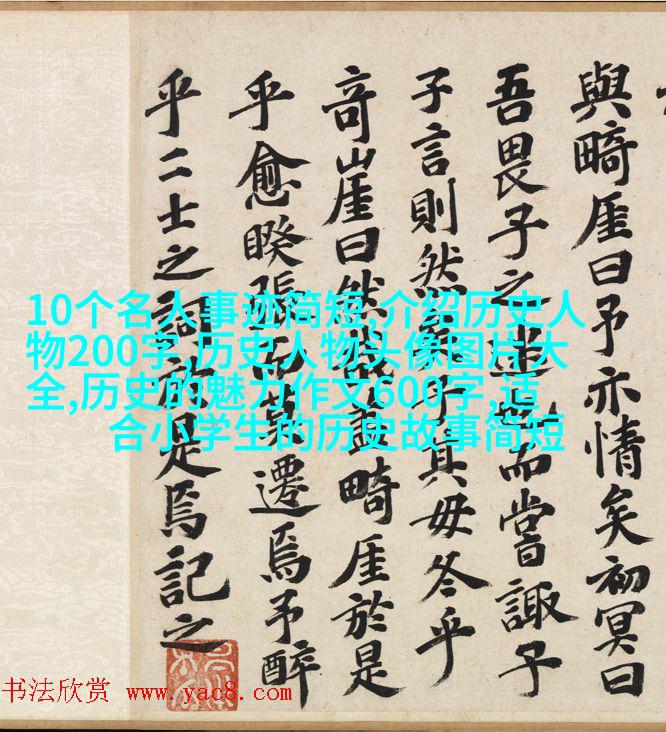 與畸厓曰予亦情矣初冥曰
吾畏子之而嘗諏子
子言則然子其毋冬乎
奇崖曰然盡畸厓於是
乎愈睽張而遷焉予醉
乎二士之詞於是焉記之
10个名人事迹简短,介绍历史人
物200字,历史人物头像图片大
全,历史的魅力作文600字,适
合小学生的历史故事简短
书法欣赏 www.yac8.com